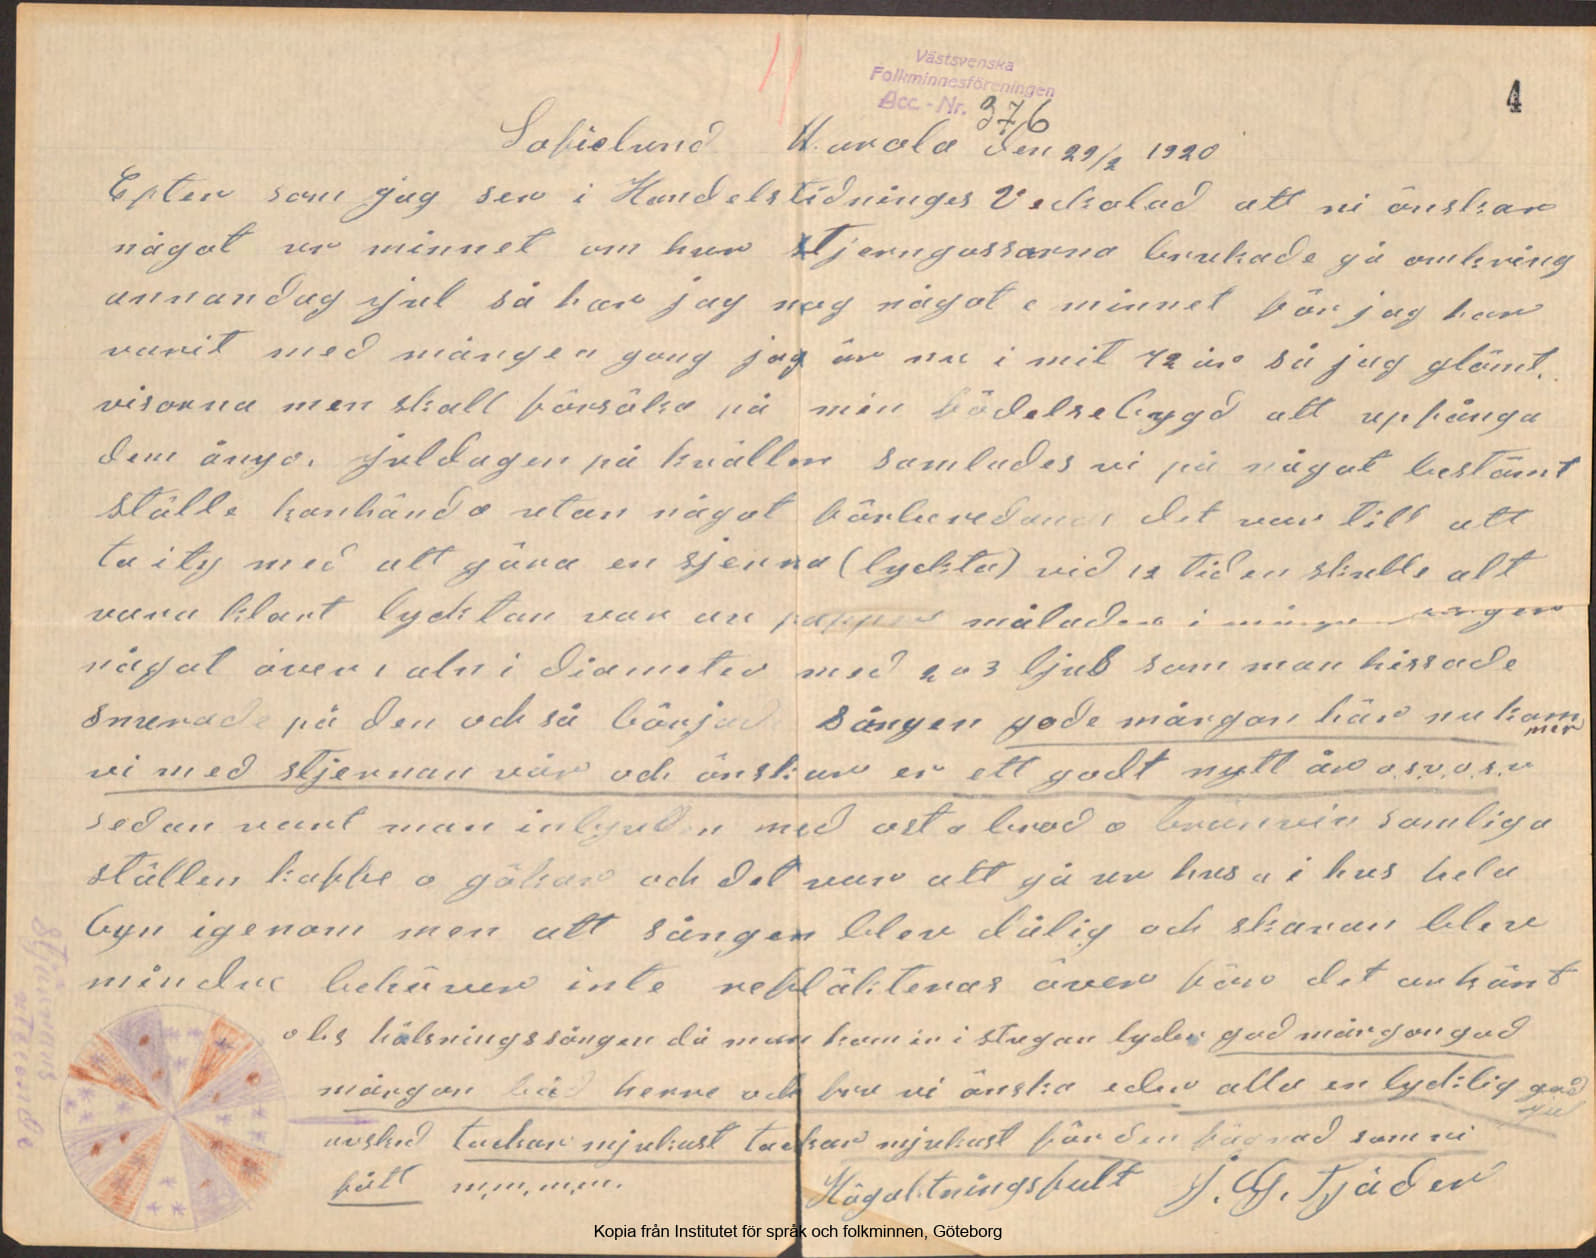 Västsvenska
Folkminnesföreningen
Acc.-Nr. 376
4
Sofielund Karola den 29/2 1920
Epter som jag ser i Handelstidninges Veckolad att ni önskar
något ur minnet om hur stjerngossarna brukade gå omkring
annandag jul så har jag nog något i minnet för jag har
varit med mången gang jag är nu i mit 72 år så jag glömt
visorna men skall försöka på min födelsebygd att upfånga
dem ånyo. juldagen på kvällen samlades vi på något bestämt
ställe kanhända utan något förberedande det var till att
ta ity med att göra en sjerna (lyckta) vid 12 tiden skulle alt
vara klart lycktan var av papper målades i färger
något över 1 aln i diameter med 2 a 3 ljus som man hissade
snurade på den och så börjad sången gode mårgon här nu kommer
vi med stjernan vår och önskar er ett godt nytt år o.s.v.o.s.v
sedan vart man inbjuden med ost o brod o bränvin somliga
ställen kaffe o gökar och det var att gå ur hus i hus hela
byn igenom men att sången blev dålig och skaran blev
mindre behöver inte refläkteras över för det var känt
obs hälsningssången då man kom in i stugan lyder god mårgon god
mårgon båd herre och fru vi önska eder alla en lycklig god jul
avsked tackar mjukast tackar mjukast för den fägnad som vi
fått m.m.m.m.
Högaktningsfult J. G. Tjäder
Stjärnans
utseende
Kopia från Institutet för språk och folkminnen, Göteborg